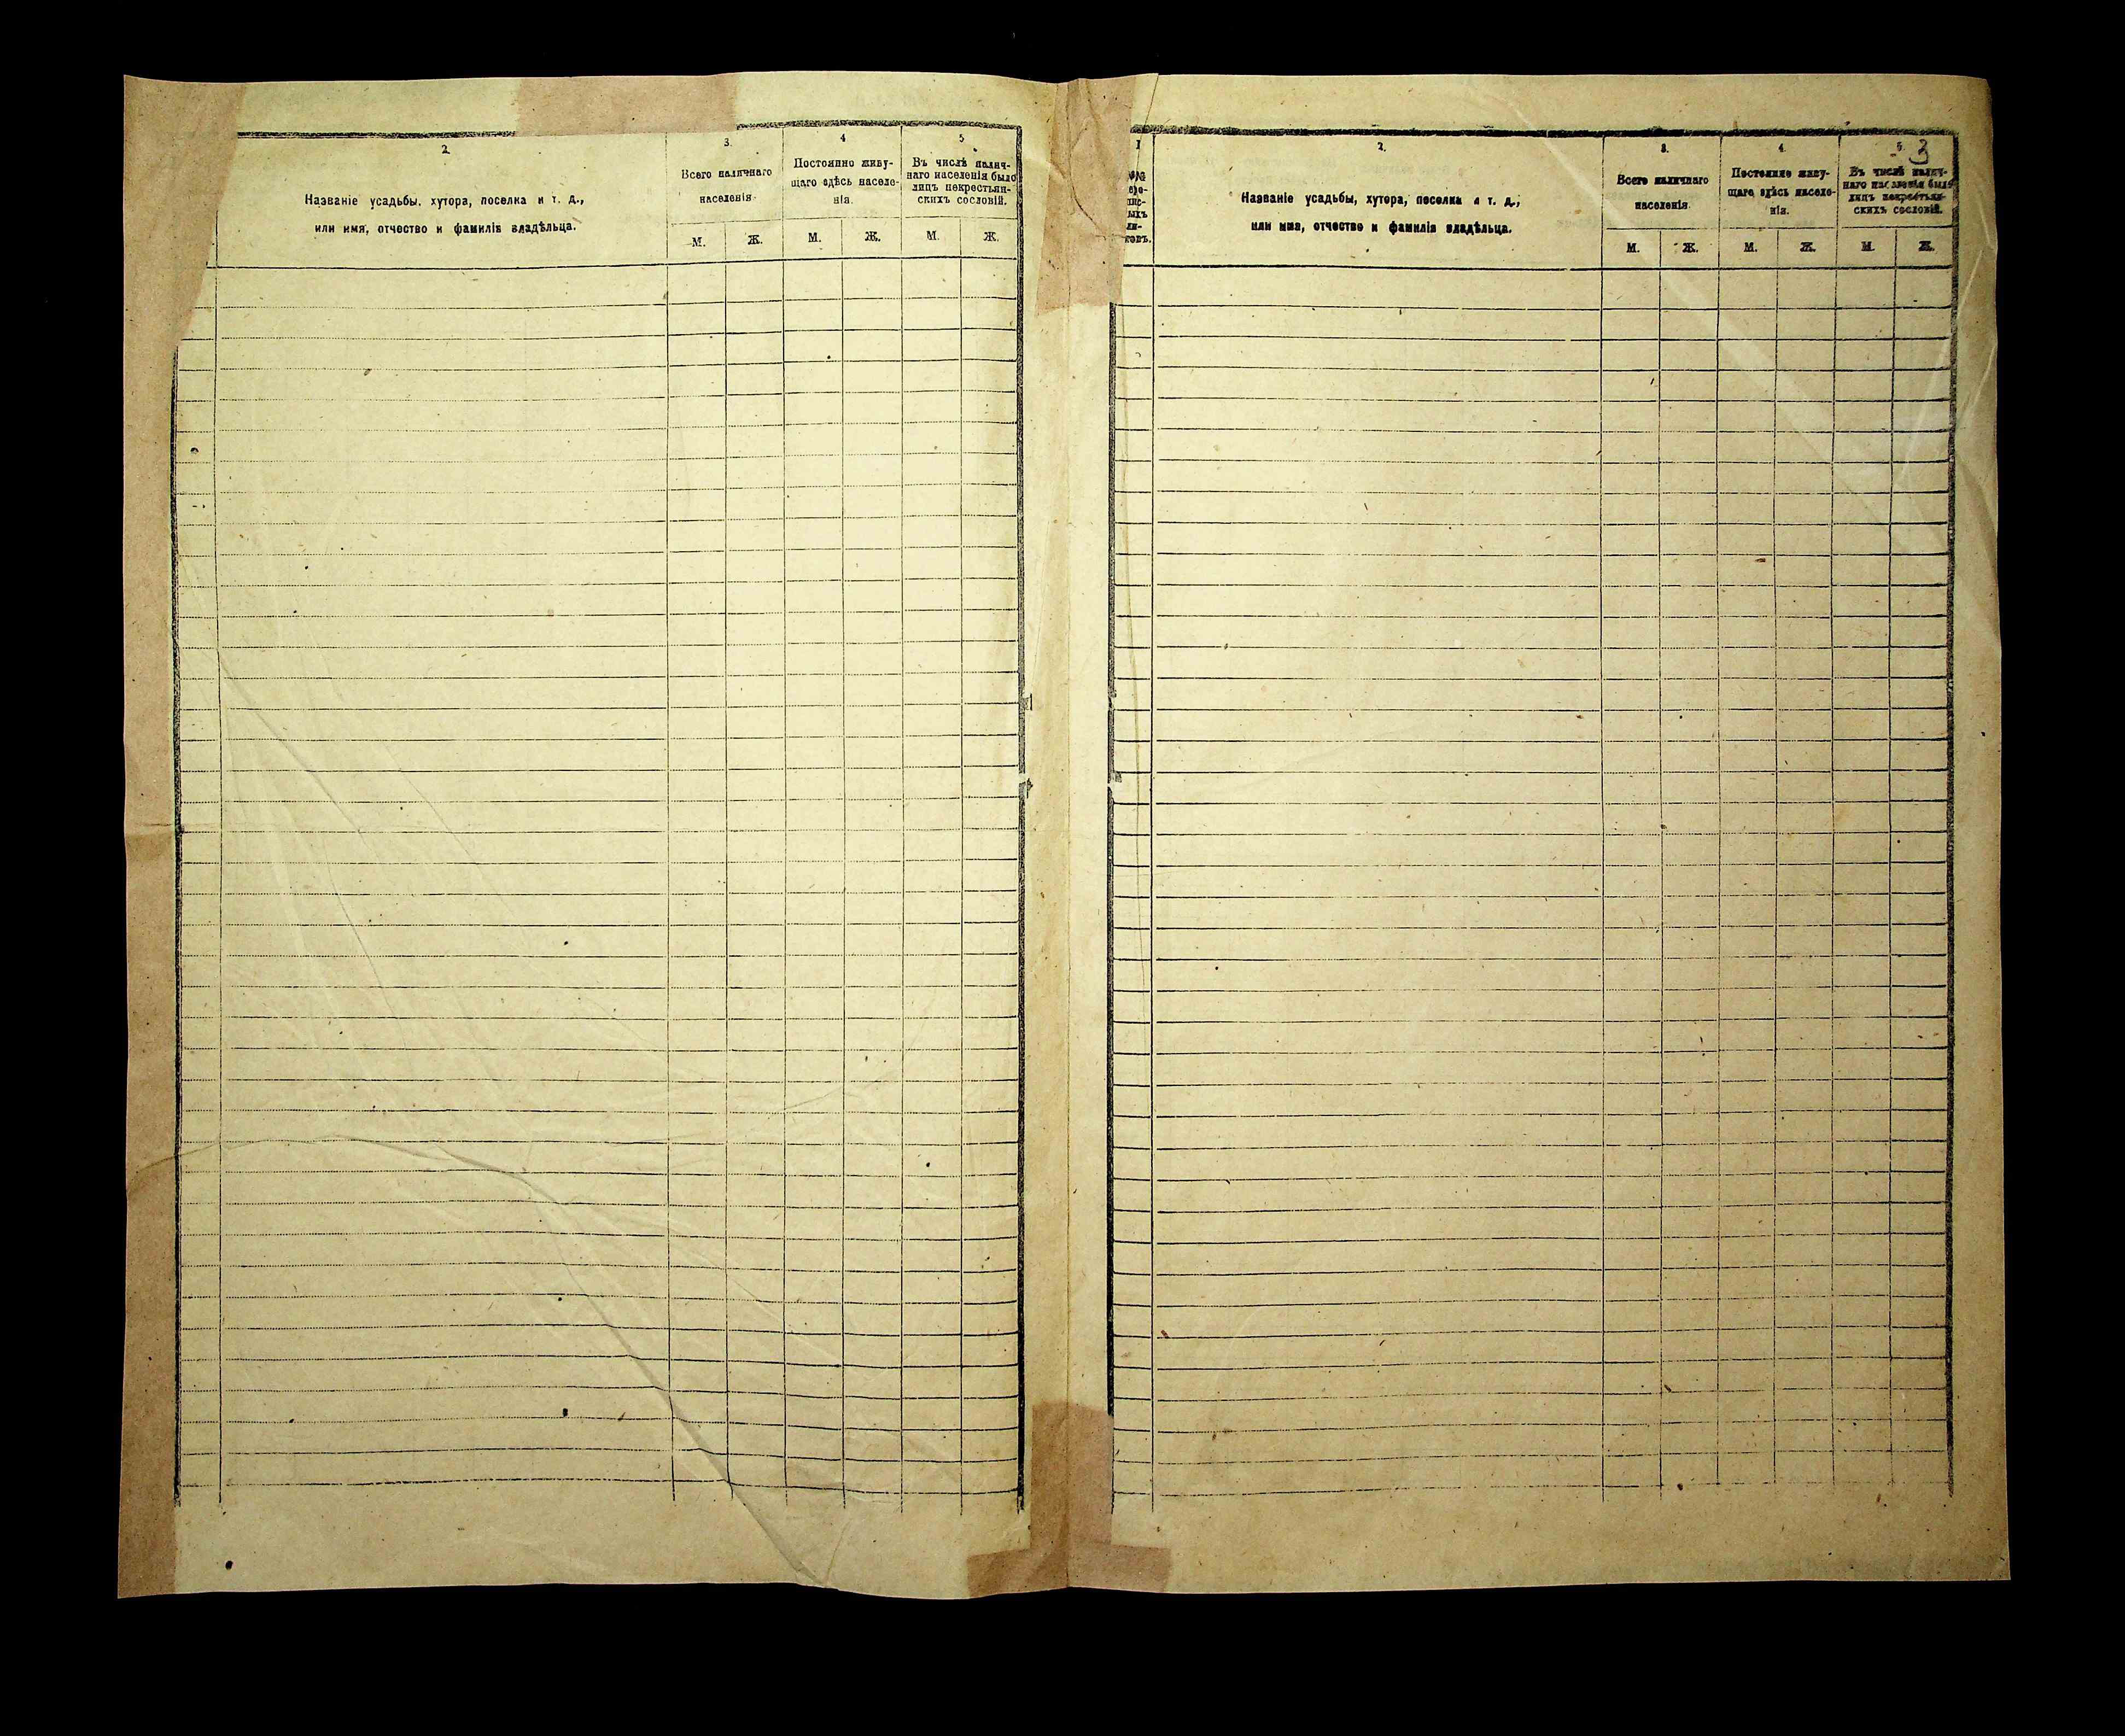 2
Названіе усадьбы, хутора, поселка и т. д.,
или имя, отчество и фамилія владѣльца.
3.
Всего наличнаго
населенія.
М. Ж.
4
Постоянно живу-
щаго здѣсь населе-
нія.
М. Ж.
5
Въ числѣ налич-
наго населенія было
лицъ некрестьян-
скихъ сословій.
М. Ж.
3
1
2.
Названіе усадьбы, хутора, поселка и т. д.,
или имя, отчество и фамилія владѣльца.
3.
Всего наличнаго
населенія.
М. Ж.
4.
Постоянно живу-
щаго здѣсь населе-
нія.
М. Ж.
5.
Въ числѣ налич-
наго населенія было
лицъ некрестьян-
скихъ сословій.
М. Ж.